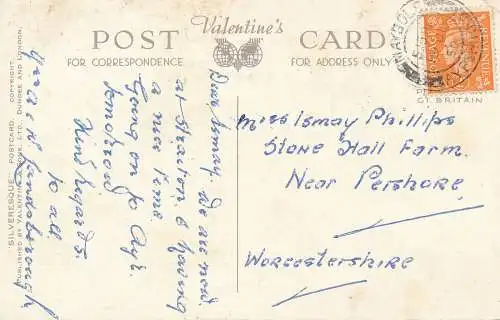 Valentine's
POST CARD
FOR CORRESPONDENCE
FOR ADDRESS ONLY
"SILVERESQUE" POSTCARD. COPYRIGHT.
PUBLISHED BY VALENTINE & SONS, LTD. DUNDEE AND LONDON.
Dear Ismay. We are now
at & having
a nice time
Going on to Ayr
tomorrow
Kind Regards.
to all
MAYBOLE
POSTAGE
GT BRITAIN
Miss Ismay Phillips
Stone Hall Farm.
Near Pershore
Worcestershire